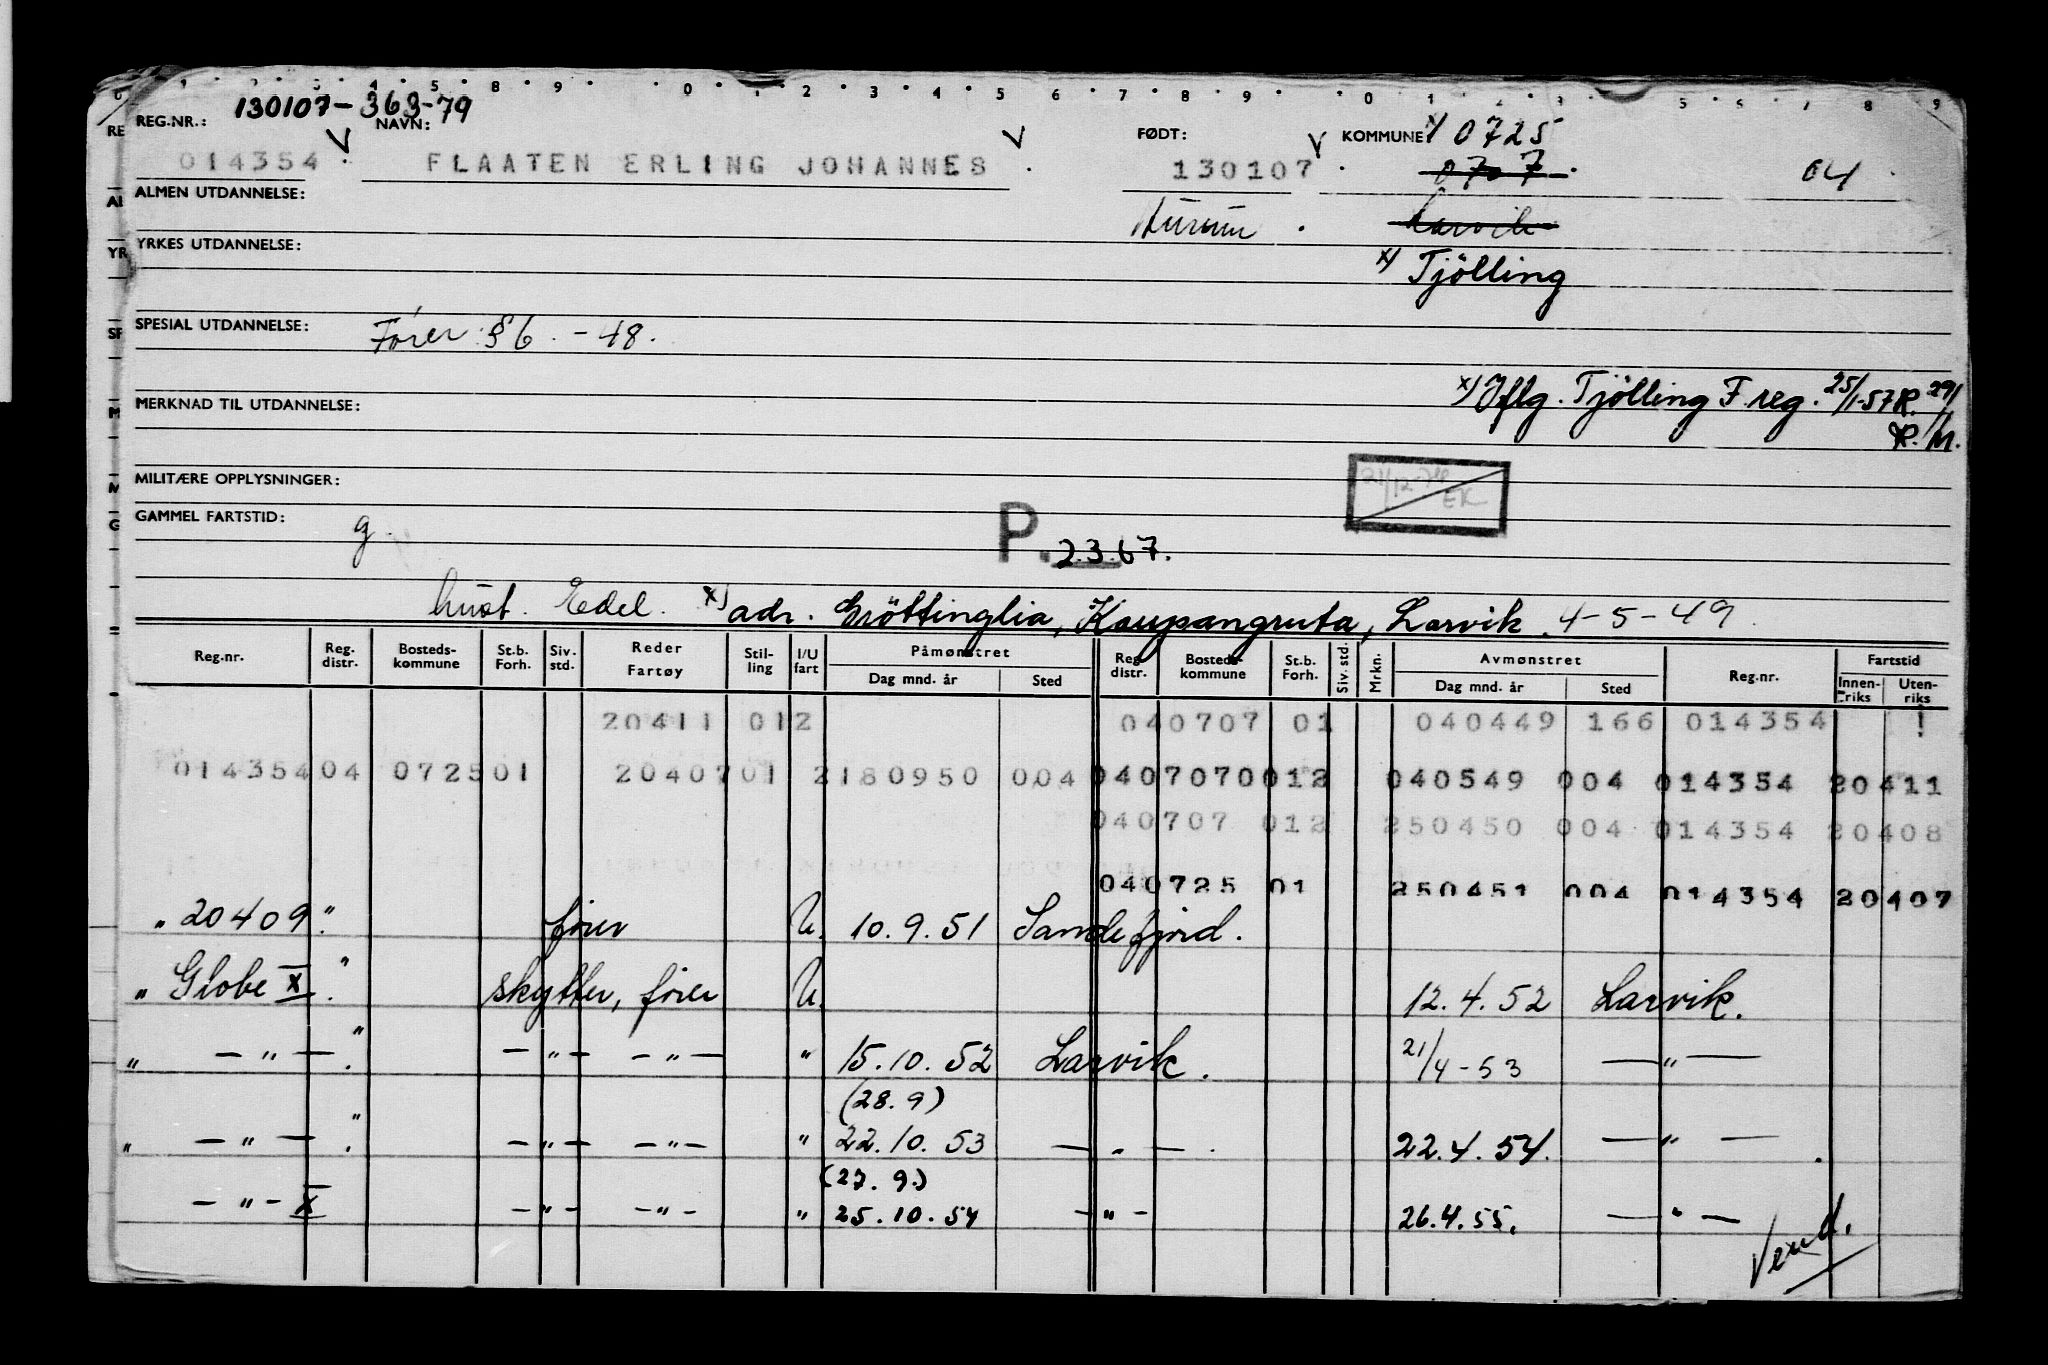 130107-363-79
REG.NR.: NAVN: FØDT: KOMMUNE x) 0725
014354 FLAATEN ERLING JOHANNES 130107 0707 04
ALMEN UTDANNELSE: Hurum Larvik
YRKES UTDANNELSE: x) Tjölling
SPESIAL UTDANNELSE: Fører §6. -48.
x) Iflg. Tjölling F.reg. 25/1-57 R. 29/1
MERKNAD TIL UTDANNELSE: R.M.
MILITÆRE OPPLYSNINGER: 21/12-78 EK
GAMMEL FARTSTID: g
P. 2.3.67.
hust. Edel. x) adr. Gröttinglia, Kaupangruta, Larvik. 4-5-49.
Reg.nr. Reg. distr. Bosteds-kommune St.b. Forh. Siv. std. Reder Fartøy Stil-ling I/U fart Påmønstret Dag mnd. år Sted Reg. distr. Bosteds-kommune St.b. Forh. Siv. std. Mrkn. Avmønstret Dag mnd. år Sted Reg.nr. Fartstid Innen-riks Uten-riks
20411 012 040707 01 040449 166 014354
014354 04 0725 01 20407 01 2 180950 004 040707 0012 040549 004 014354 20411
040707 012 250450 004 014354 20408
040725 01 250451 004 014354 20407
" 20409 " fører U. 10.9.51 Sandefjord.
" Globe X " skytter, fører U. 12.4.52 Larvik.
" — " — " — " — — " — " 15.10.52 Larvik. 21/4-53 — " —
(28.9)
" — " — " — " — — " — " 22.10.53 — " — 22.4.54. — " —
(27.9.)
— " — X — " — — " — " 25.10.54 — " — 26.4.55. — " —
Vend.